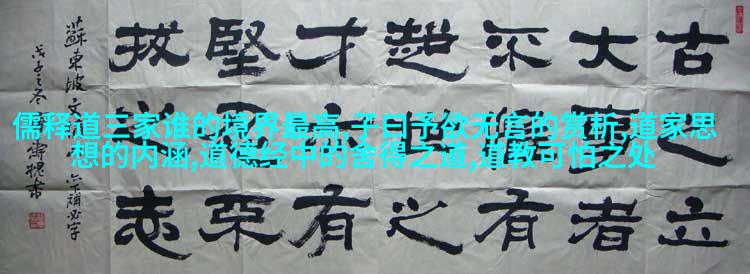 古之立
大事者
不惟有
超世之
才必有
堅忍不
拔之志
蘇東坡文
戊子之冬
儒释道三家谁的境界最高,子曰予欲无言的赏析,道家思
想的内涵,道德经中的舍得之道,道教可怕之处